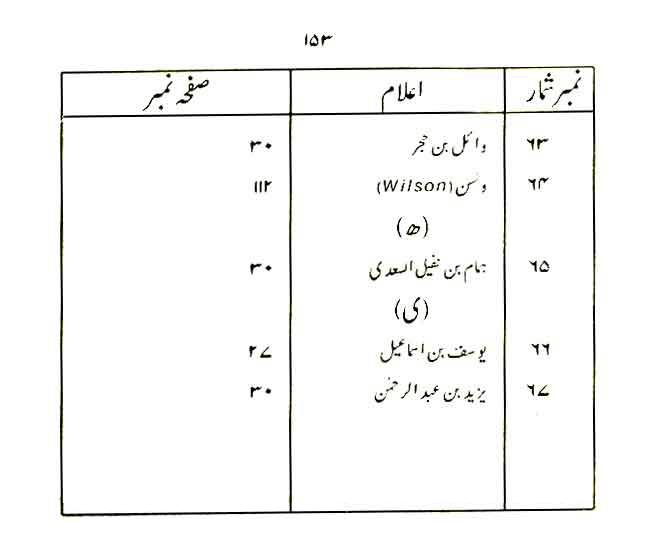 ۱۵۳
نمبر شمار اعلام صفحہ نمبر
۶۳ وائل بن حجر ۳۰
۶۴ ولسن (Wilson) ۱۱۲
(ھ)
۶۵ ہمام بن نفیل السعدی ۳۰
(ی)
۶۶ یوسف بن اسماعیل ۲۷
۶۷ یزید بن عبد الرحمٰن ۳۰